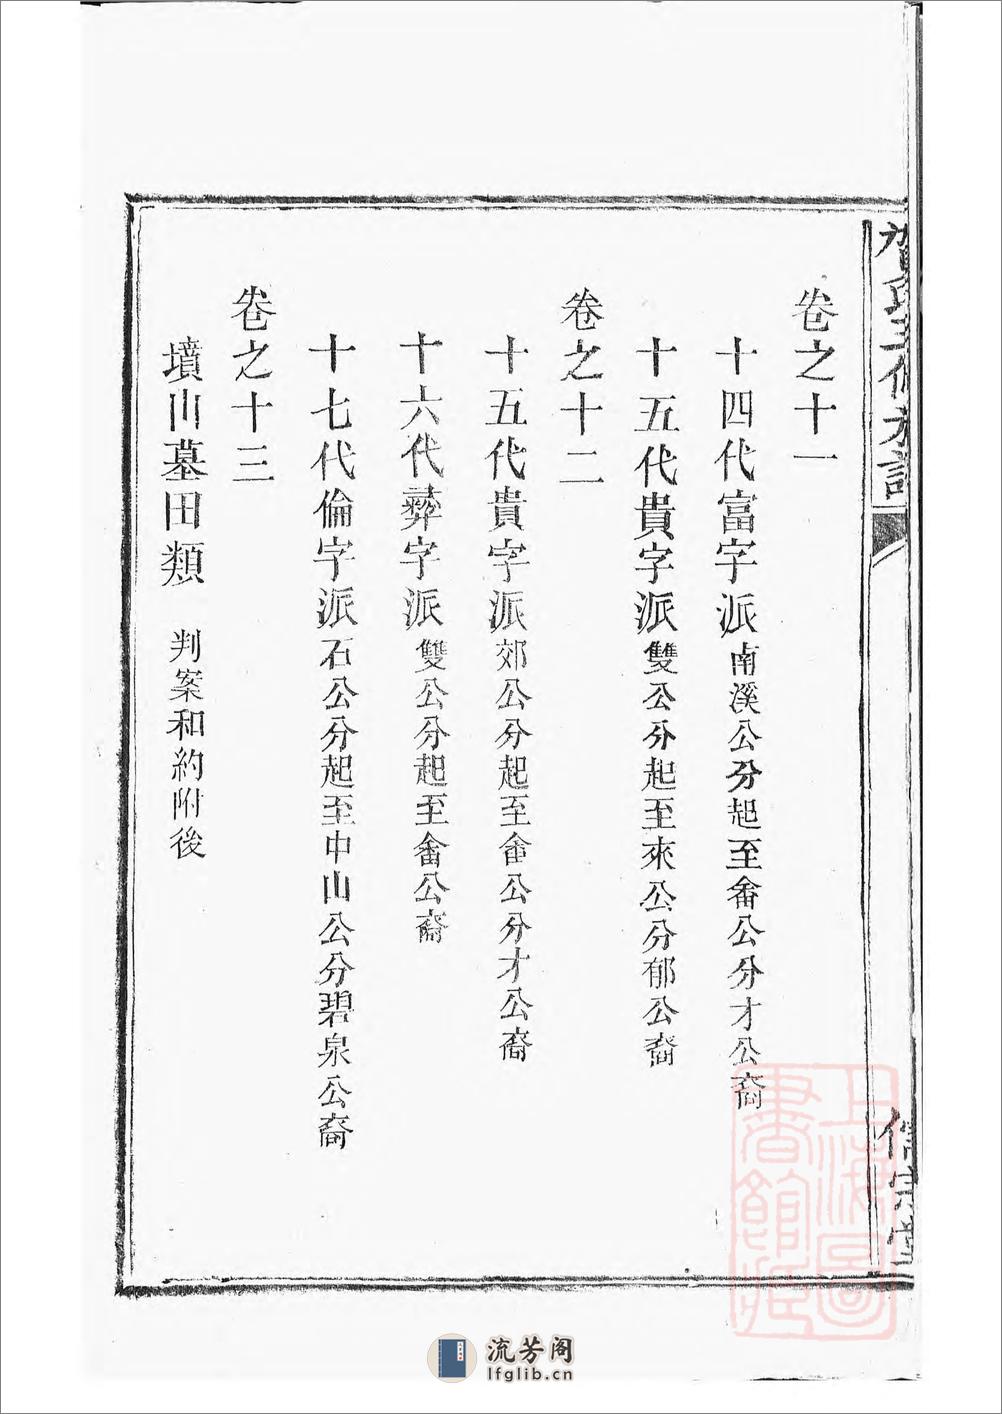 賀氏三修族譜
卷之十一
十四代富字派南溪公分起至畬公分才公裔
十五代貴字派雙公分起至來公分郁公裔
卷之十二
十五代貴字派郊公分起至畬公分才公裔
十六代彝字派雙公分起至畬公裔
十七代倫字派石公分起至中山公分碧泉公裔
卷之十三
墳山墓田類 判案和約附後
宗堂
上海圖書館藏
流芳阁
lfglib.cn